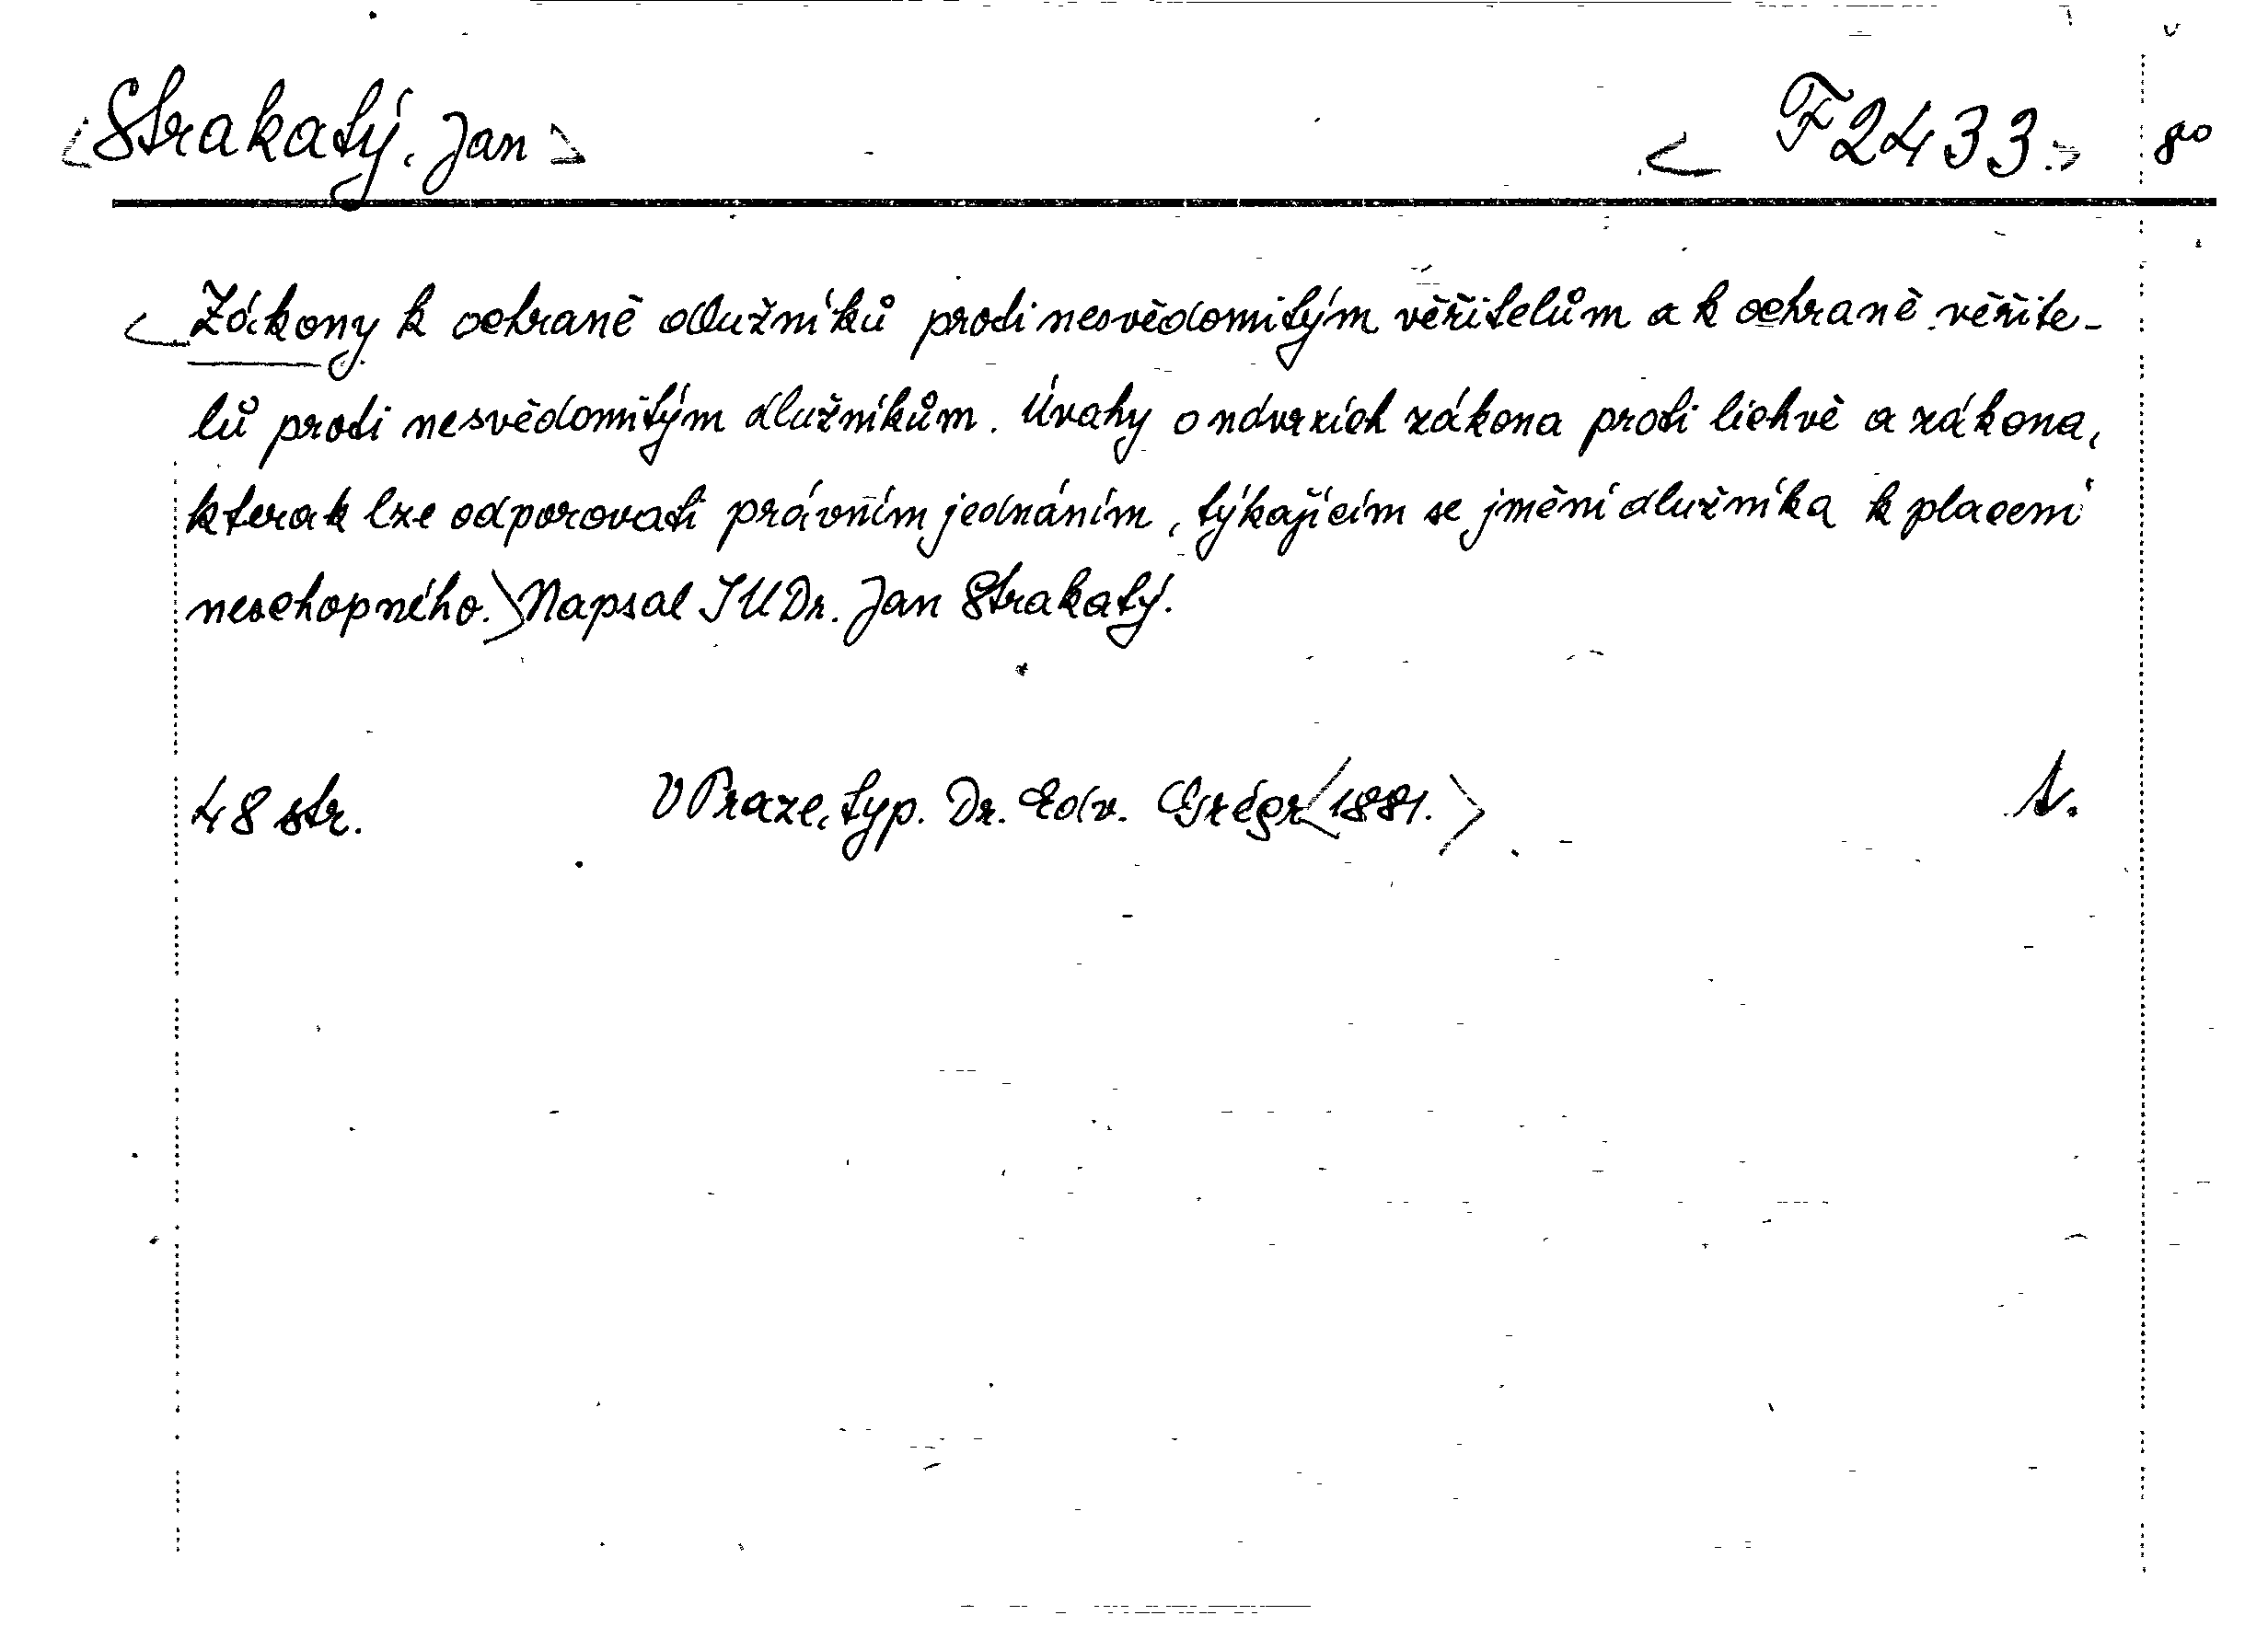 <Strakatý, Jan> <F2433.> 8°
<Zákony k ochraně dlužníků proti nesvědomitým věřitelům a k ochraně věřite-
lů proti nesvědomitým dlužníkům. Úvahy o návrzích zákona proti lichvě a zákona,
kterak lze odporovati právním jednáním, týkajícím se jmění dlužníka k placení
neschopného.> Napsal JUDr. Jan Strakatý.
48 str. V Praze, typ. Dr. Edv. Grégr <1881.>